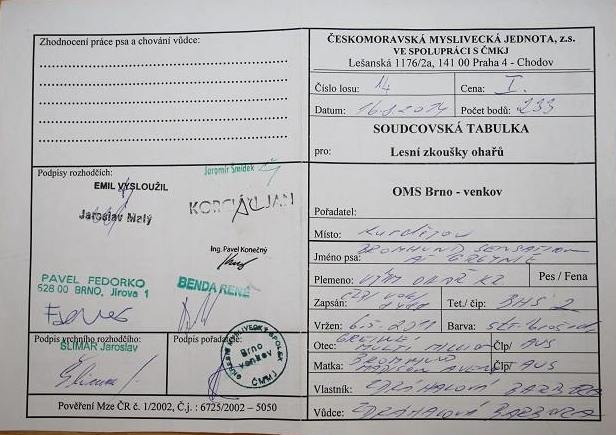 Zhodnocení práce psa a chování vůdce:
Podpisy rozhodčích:
Jaromír Šmídek
EMIL VYSLOUŽIL
Jaroslav Malý
KORCIÁL JAN
Ing. Pavel Konečný
PAVEL FEDORKO
528 00 BRNO, Jírova 1
BENDA RENÉ
Podpis vrchního rozhodčího:
SLIMAR Jaroslav
Podpis pořadatele:
OKRESNÍ MYSLIVECKÝ SPOLEK
Brno
venkov
ČMMJ
Pověření Mze ČR č. 1/2002, Č.j. : 6725/2002 – 5050
ČESKOMORAVSKÁ MYSLIVECKÁ JEDNOTA, z.s.
VE SPOLUPRÁCI S ČMKJ
Lešanská 1176/2a, 141 00 Praha 4 - Chodov
Číslo losu: 14 Cena: I.
Datum: 16.8.2014 Počet bodů: 233
SOUDCOVSKÁ TABULKA
pro: Lesní zkoušky ohařů
OMS Brno - venkov
Pořadatel:
Místo: Kurdějov
Jméno psa: BROMHUND SENSATION
AT GREYNIE
Plemeno: VÝM. OHAŘ KR Pes / Fena
Zapsán: Tet./ čip: BHS 2
Vržen: 6.5.2011 Barva:
Otec: GREYNIE Člp/ AUS
Matka: BROMHUND
MADISON AVENUE Člp/ AUS
Vlastník: ZDRÁHALOVÁ BARBORA
Vůdce: ZDRÁHALOVÁ BARBORA